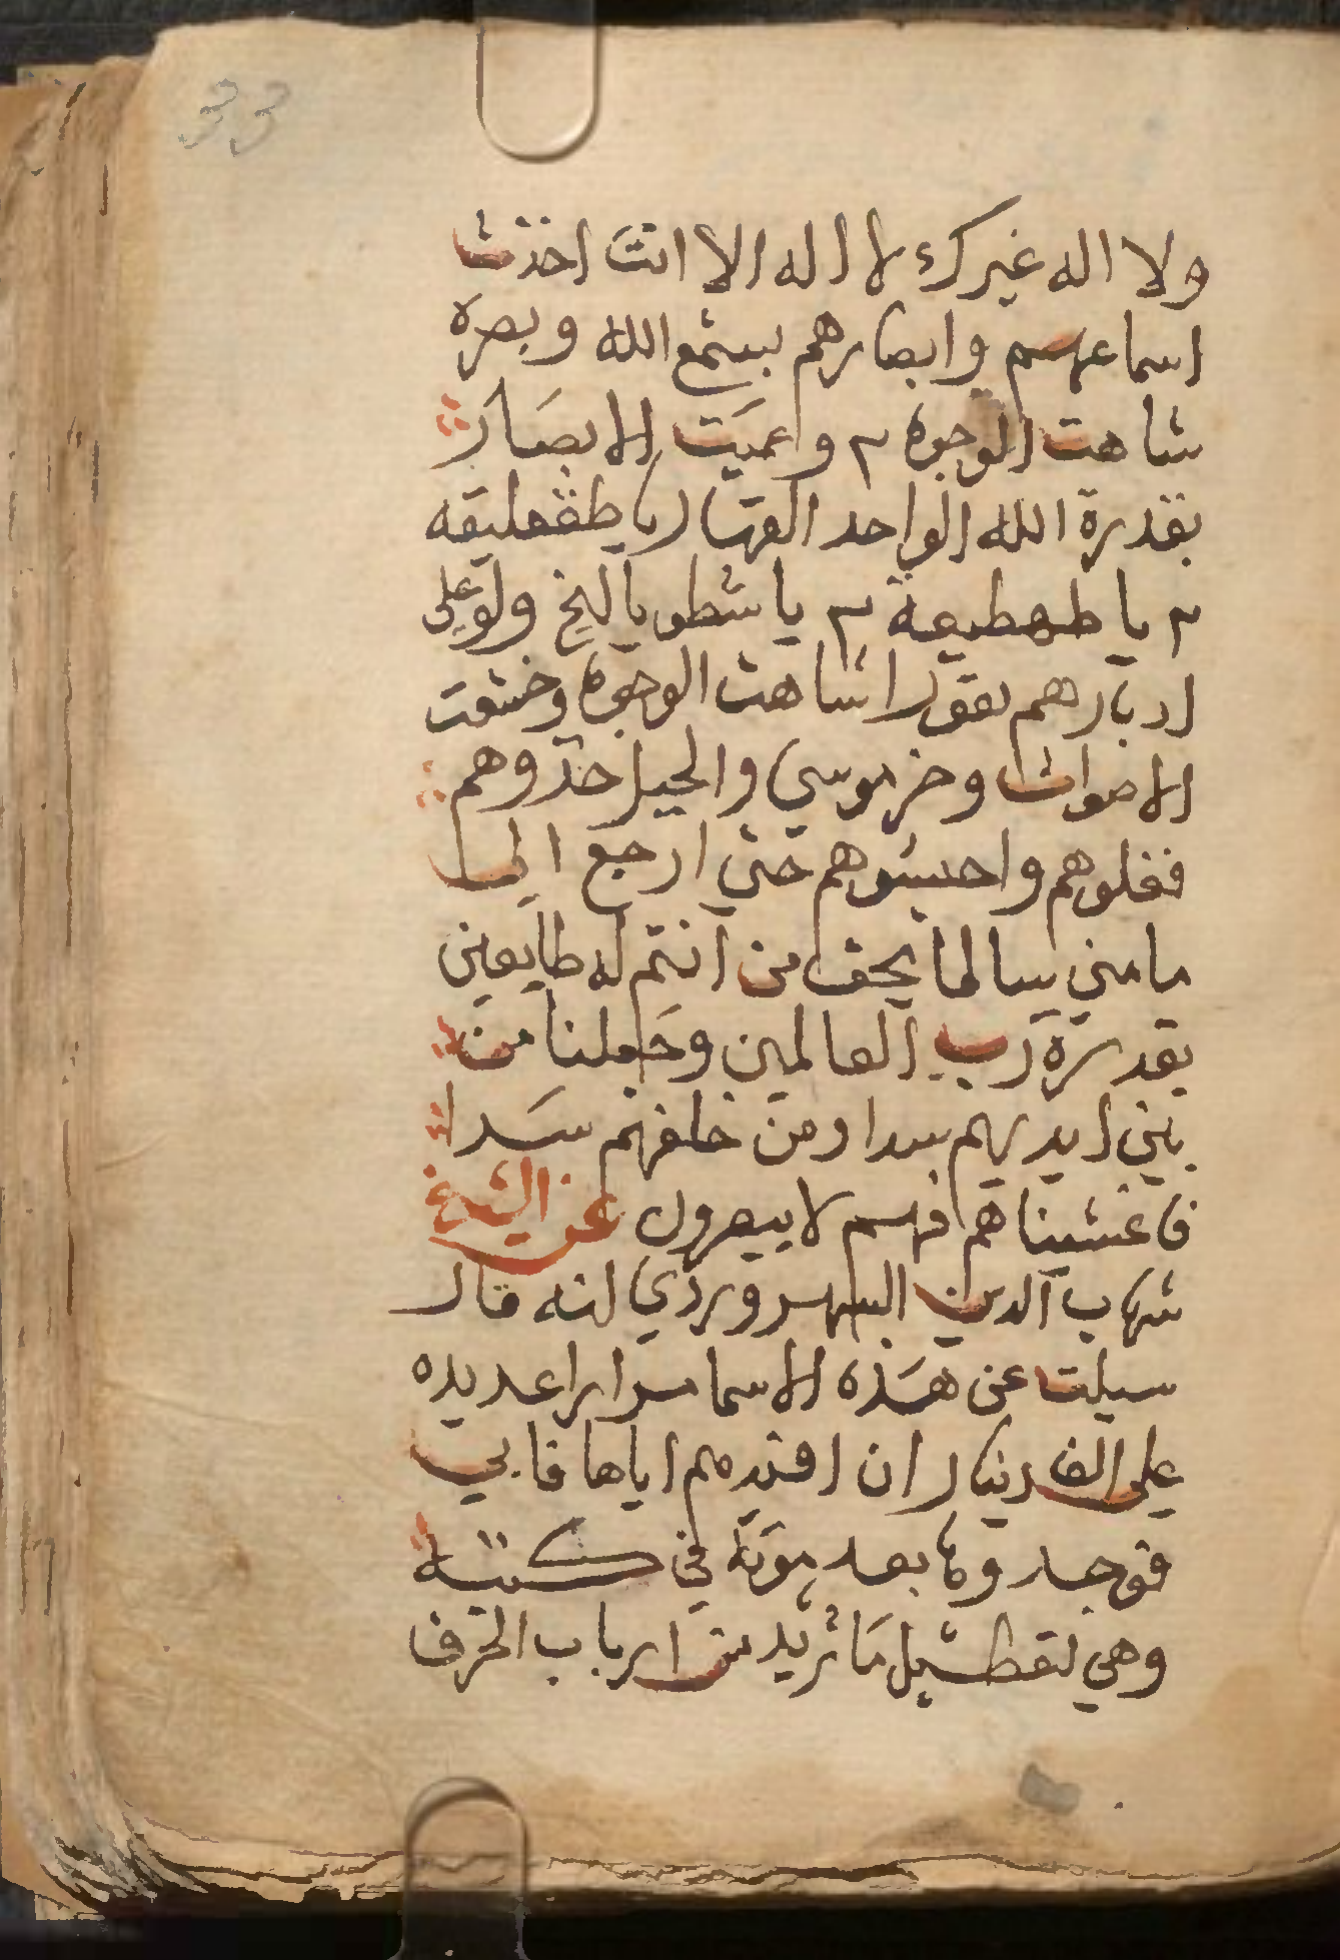 33
ولا اله غيرك لا اله الا انت اخذت
اسماعهم وابصارهم بسمع الله وبصره
شاهت الوجوه ٣ وعميت الابصار
بقدرة الله الواحد القهار يا طقعليقه
٣ يا طهطيعة ٣ يا شطو يا ليخ ولو على
ادبارهم نفورا شاهت الوجوه وخشعت
الاصوات وخر موسي والجبل خذوهم
فغلوهم واحبسوهم حتى ارجع الى
مامني سالما بحق من انتم له طايعين
بقدرة رب العالمين وجعلنا من
بين ايديهم سدا ومن خلفهم سدا
فاغشيناهم فهم لا يبصرون عن الشيخ
شهاب الدين السهروردي انه قال
سيلت عن هذه الاسما مرارا عديده
على الف دينار ان افيدهم اياها فابي
فوجدوها بعد موته في كتبه
وهي تقطش ما تريد من ارباب الحرف